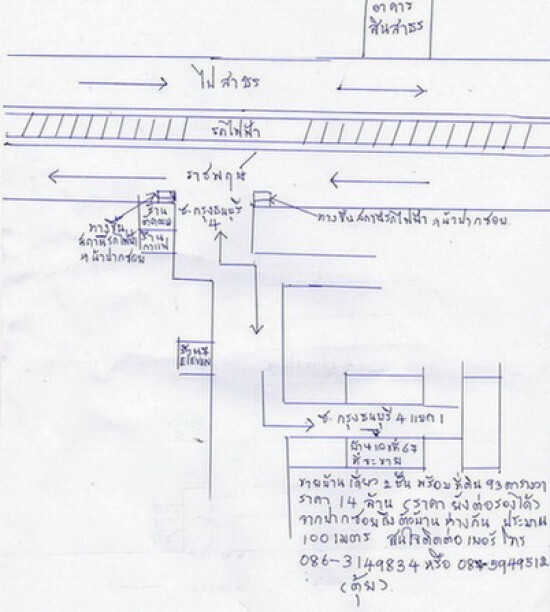 อาคาร
สินสาธร
ไปสาธร
รถไฟฟ้า
ราชพฤกษ์
ซ.กรุงธนบุรี
4
ร้าน
ทางขึ้น
สถานีรถไฟฟ้า
หน้าปากซอย
ร้าน
กาแฟ
ทางขึ้นสถานีรถไฟฟ้า หน้าปากซอย
ร้าน 7
ELEVEN
ซ.กรุงธนบุรี 4 แยก 1
บ้านเลขที่ 67
ที่จะขาย
ขายบ้านเดี่ยว 2 ชั้น พร้อมที่ดิน 93 ตารางวา
ราคา 14 ล้าน (ราคายังต่อรองได้)
จากปากซอยถึงตัวบ้าน ห่างกัน ประมาณ
100 เมตร สนใจติดต่อ เบอร์ โทร
086-3149834 หรือ
(ตุ้ม)